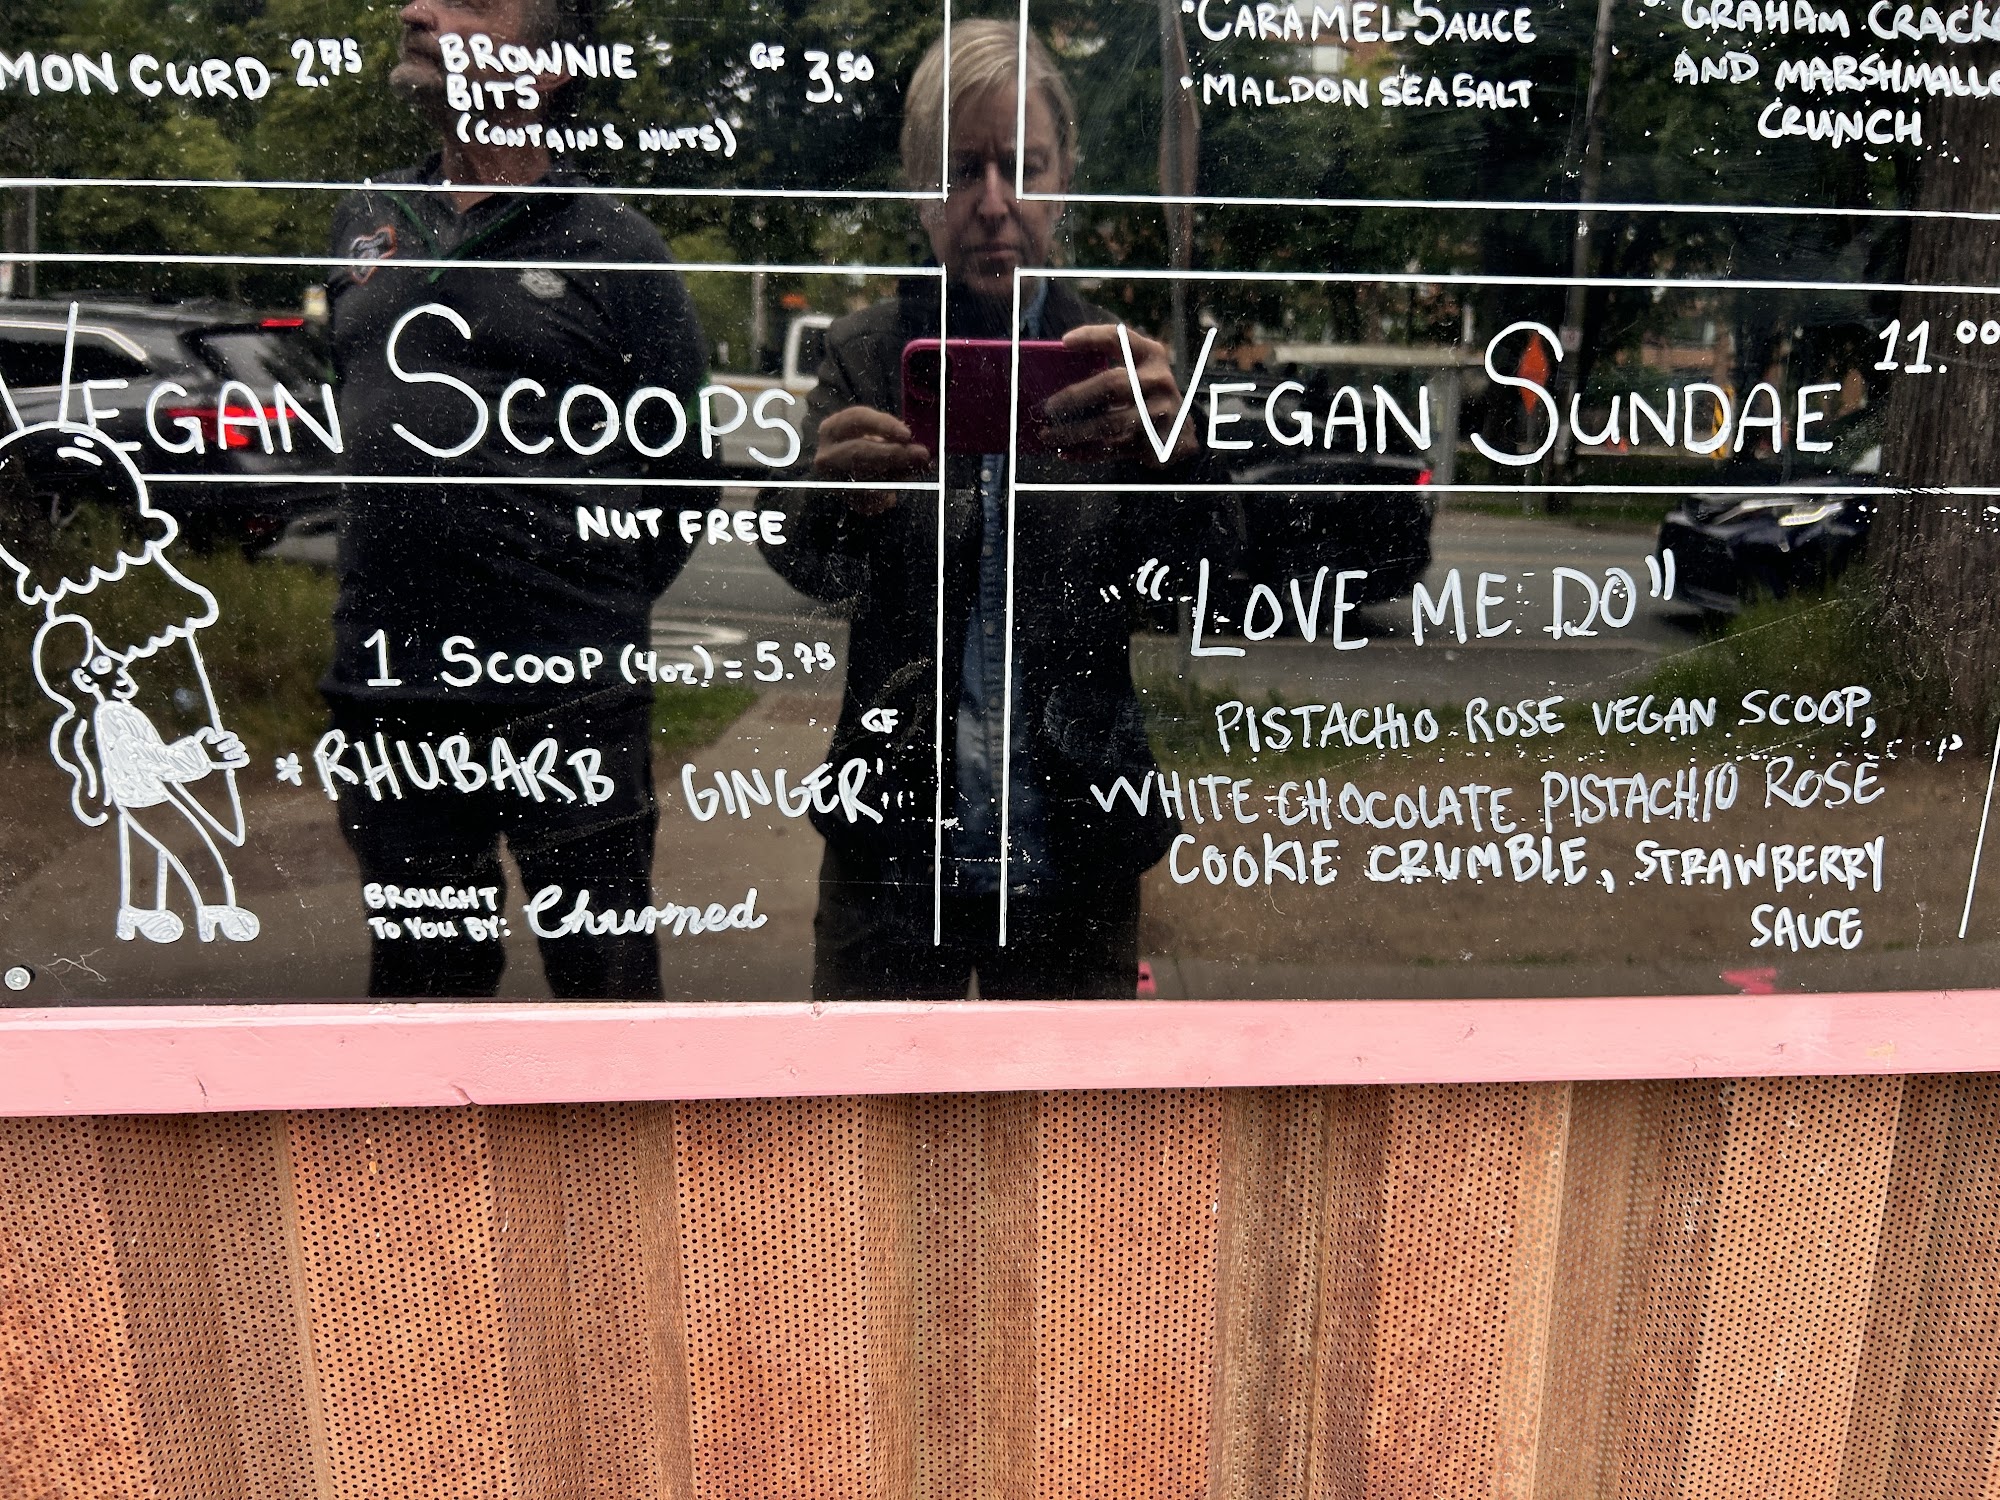 MON CURD 2.75
BROWNIE GF 3.50
BITS
(CONTAINS NUTS)
VEGAN SCOOPS
NUT FREE
1 SCOOP (4oz) = 5.75
GF
*RHUBARB GINGER
BROUGHT
TO YOU BY: Churned
•CARAMEL SAUCE
•MALDON SEA SALT
GRAHAM CRACKE
AND MARSHMALLO
CRUNCH
VEGAN SUNDAE 11.00
"LOVE ME DO"
PISTACHIO ROSE VEGAN SCOOP,
WHITE CHOCOLATE PISTACHIO ROSE
COOKIE CRUMBLE, STRAWBERRY
SAUCE